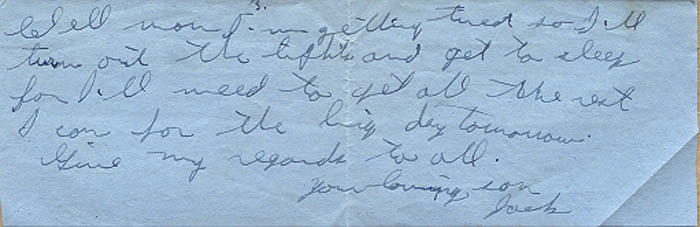 3.
Well mom I'm getting tired so I'll
turn out the lights and get to sleep
for I'll need to get all the rest
I can for the big day tomorrow.
Give my regards to all.
Your loving son
Jack